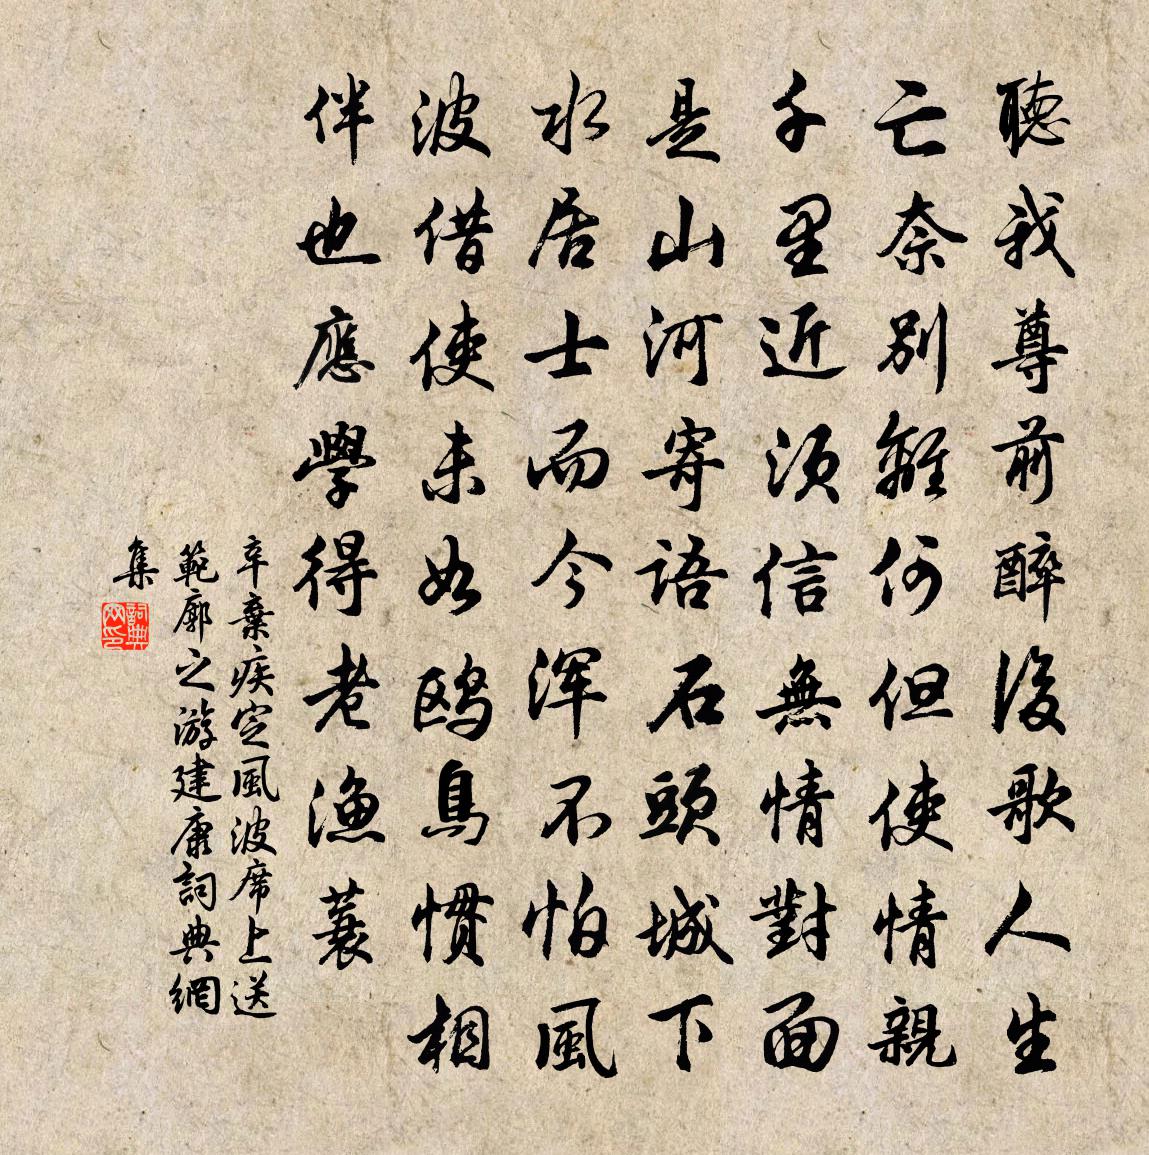 聽我尊前醉後歌人生
亡奈別離何但使情親
千里近須信無情對面
是山河寄語石頭城下
水居士而今渾不怕風
波借使未如鷗鳥慣相
伴也應學得老漁蓑
辛棄疾定風波席上送
範廓之游建康詞典網
集
詞典
网印